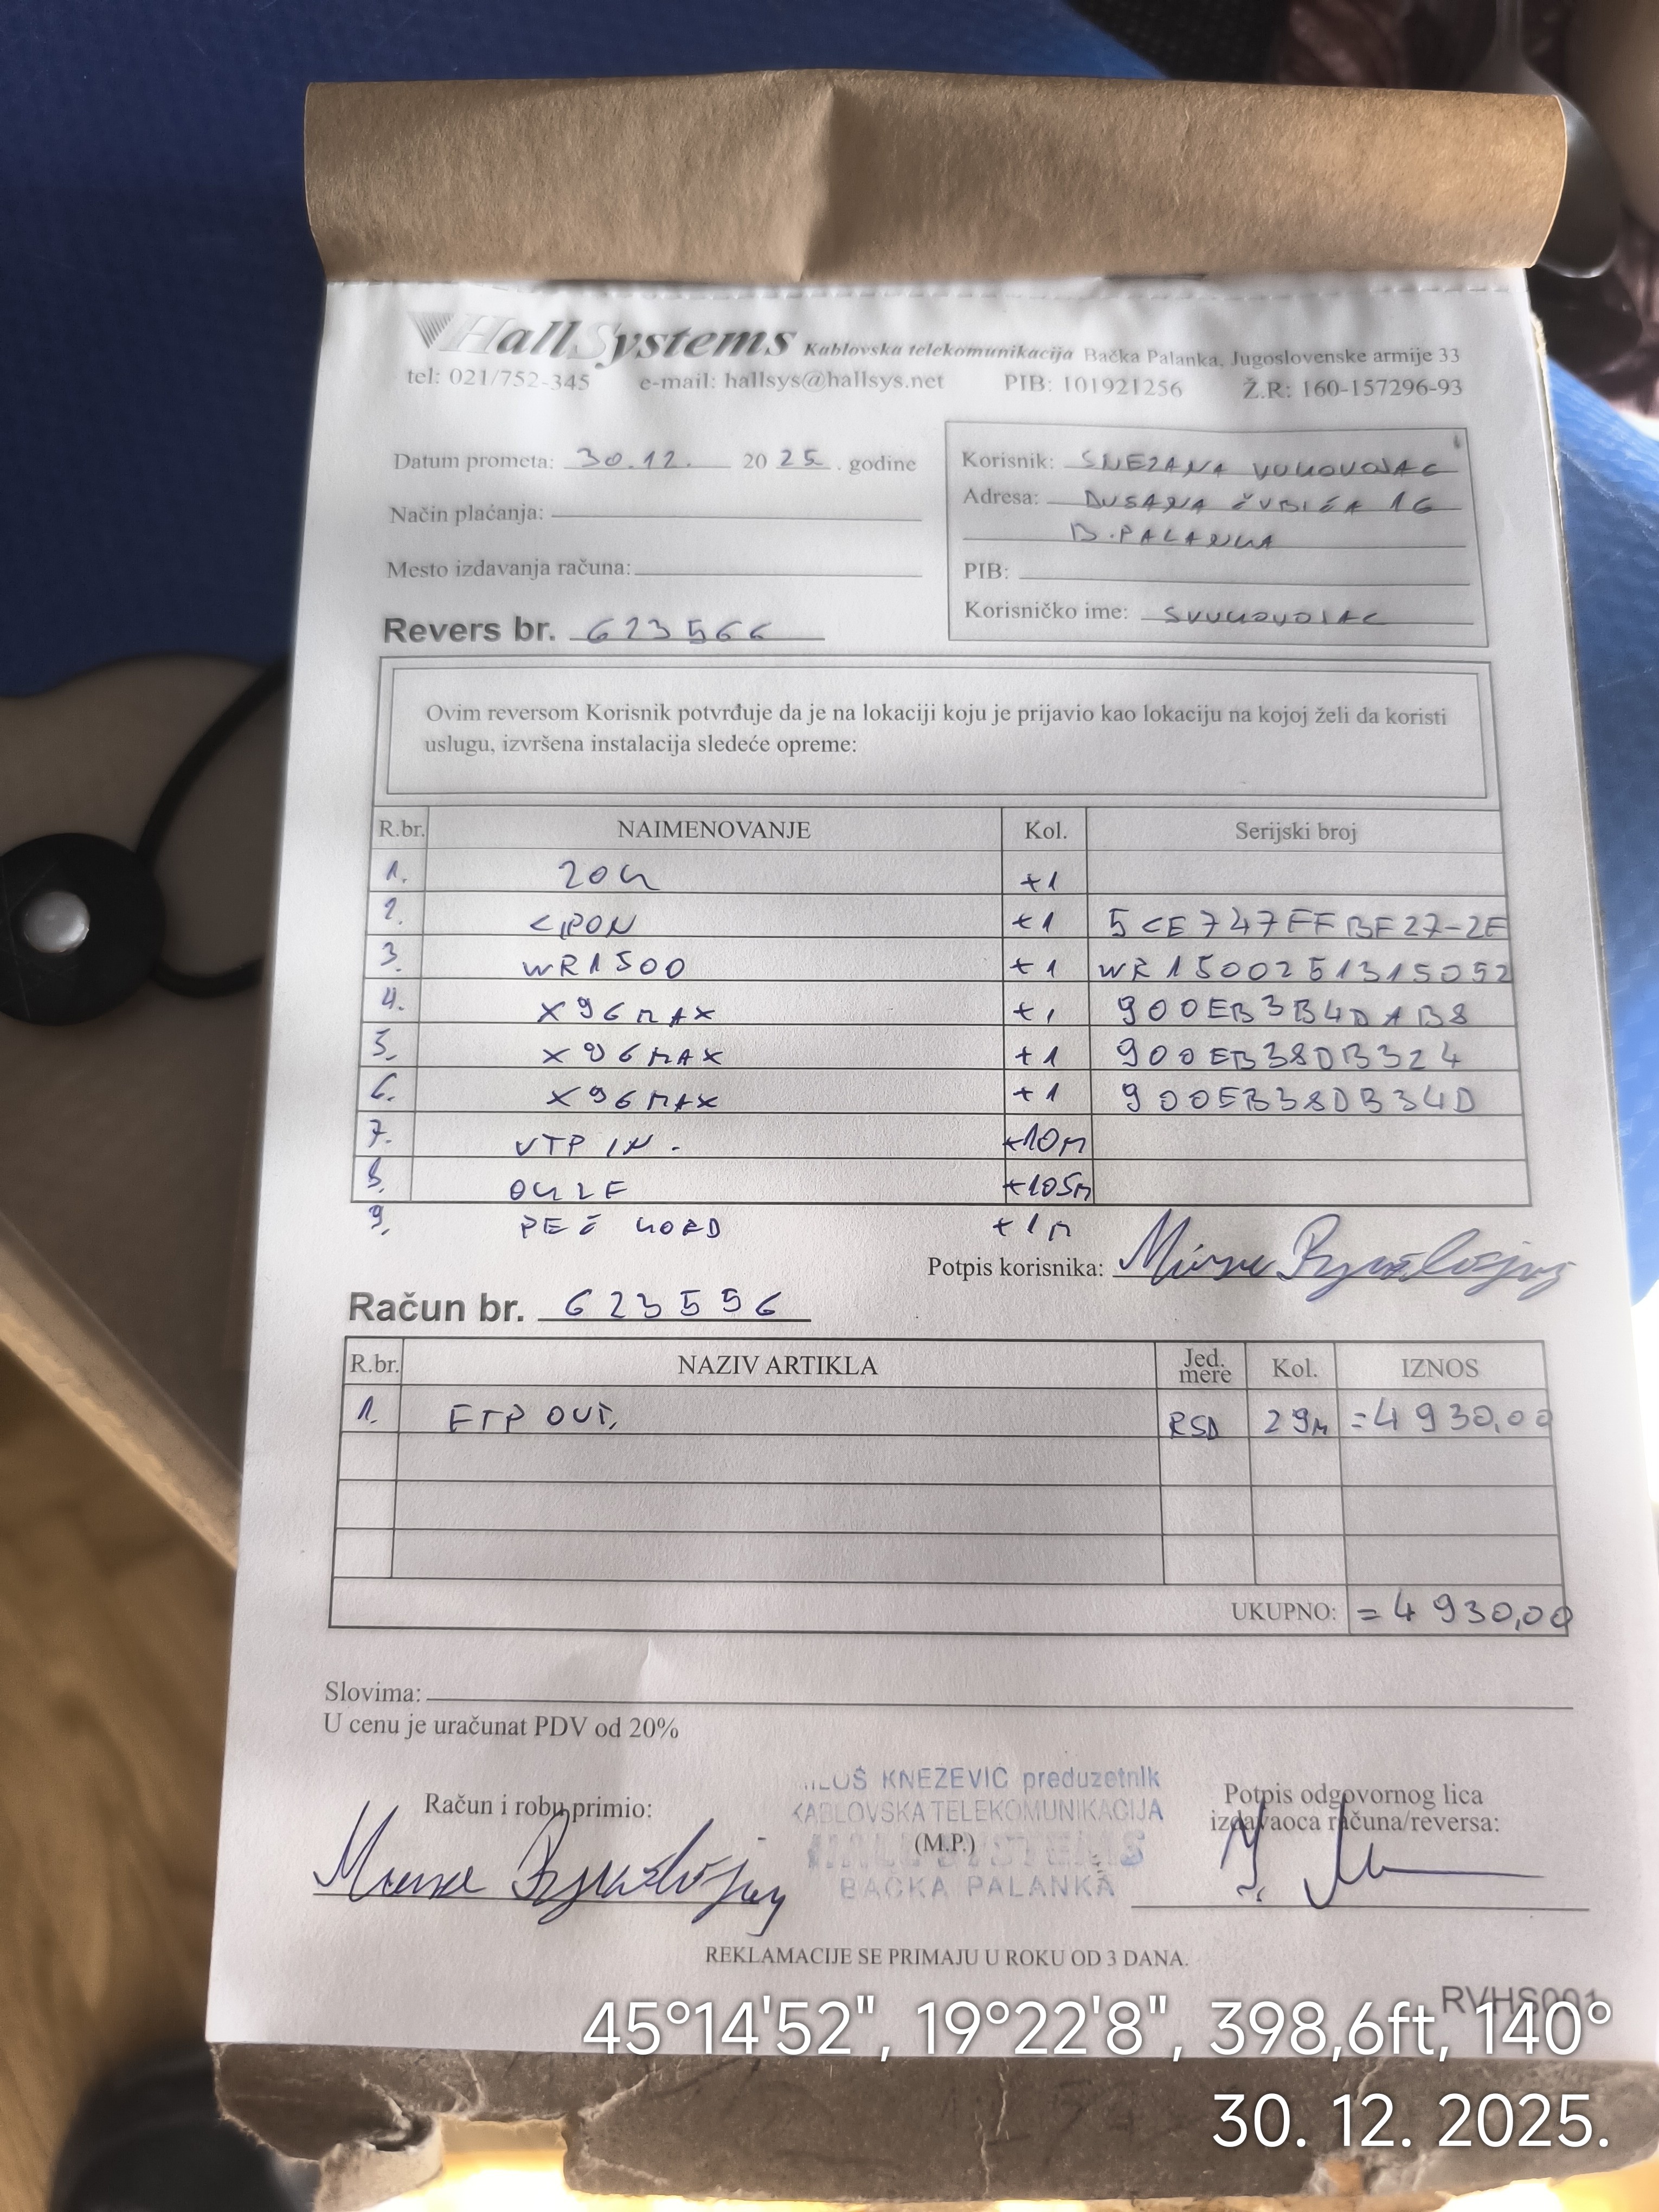 HallSystems Kablovska telekomunikacija Bačka Palanka, Jugoslovenske armije 33
tel: 021/752-345 e-mail: hallsys@hallsys.net PIB: 101921256 Ž.R: 160-157296-93
Datum prometa: 30.12. 2025. godine
Način plaćanja:
Mesto izdavanja računa:
Revers br. 623566
Korisnik: SNEZANA VUKOVOJAC
Adresa: DUSANA ČUBIĆA 16
B. PALANKA
PIB:
Korisničko ime: SVUKOVOJAC
Ovim reversom Korisnik potvrđuje da je na lokaciji koju je prijavio kao lokaciju na kojoj želi da koristi
uslugu, izvršena instalacija sledeće opreme:
R.br. NAIMENOVANJE Kol. Serijski broj
1. ZOK +1
2. GPON +1 5CE747FFBF27-2E
3. WR1500 +1 WR1500251315052
4. X96MAX +1 900EB3B4DAB8
5. X96MAX +1 900EB38DB324
6. X96MAX +1 900EB38DB34D
7. UTP IN. +10M
8. OK2F +105M
9. PEČ KORD +1M
Potpis korisnika:
Račun br. 623556
R.br. NAZIV ARTIKLA Jed. mere Kol. IZNOS
1. FTP OUT. RSD 29M =4930,00
UKUPNO: =4930,00
Slovima:
U cenu je uračunat PDV od 20%
MILOŠ KNEŽEVIĆ preduzetnik
KABLOVSKA TELEKOMUNIKACIJA
HALL SYSTEMS
BAČKA PALANKA
Račun i robu primio:
(M.P.)
Potpis odgovornog lica
izdavaoca računa/reversa:
REKLAMACIJE SE PRIMAJU U ROKU OD 3 DANA.
RVHS001
45°14'52", 19°22'8", 398,6ft, 140°
30. 12. 2025.